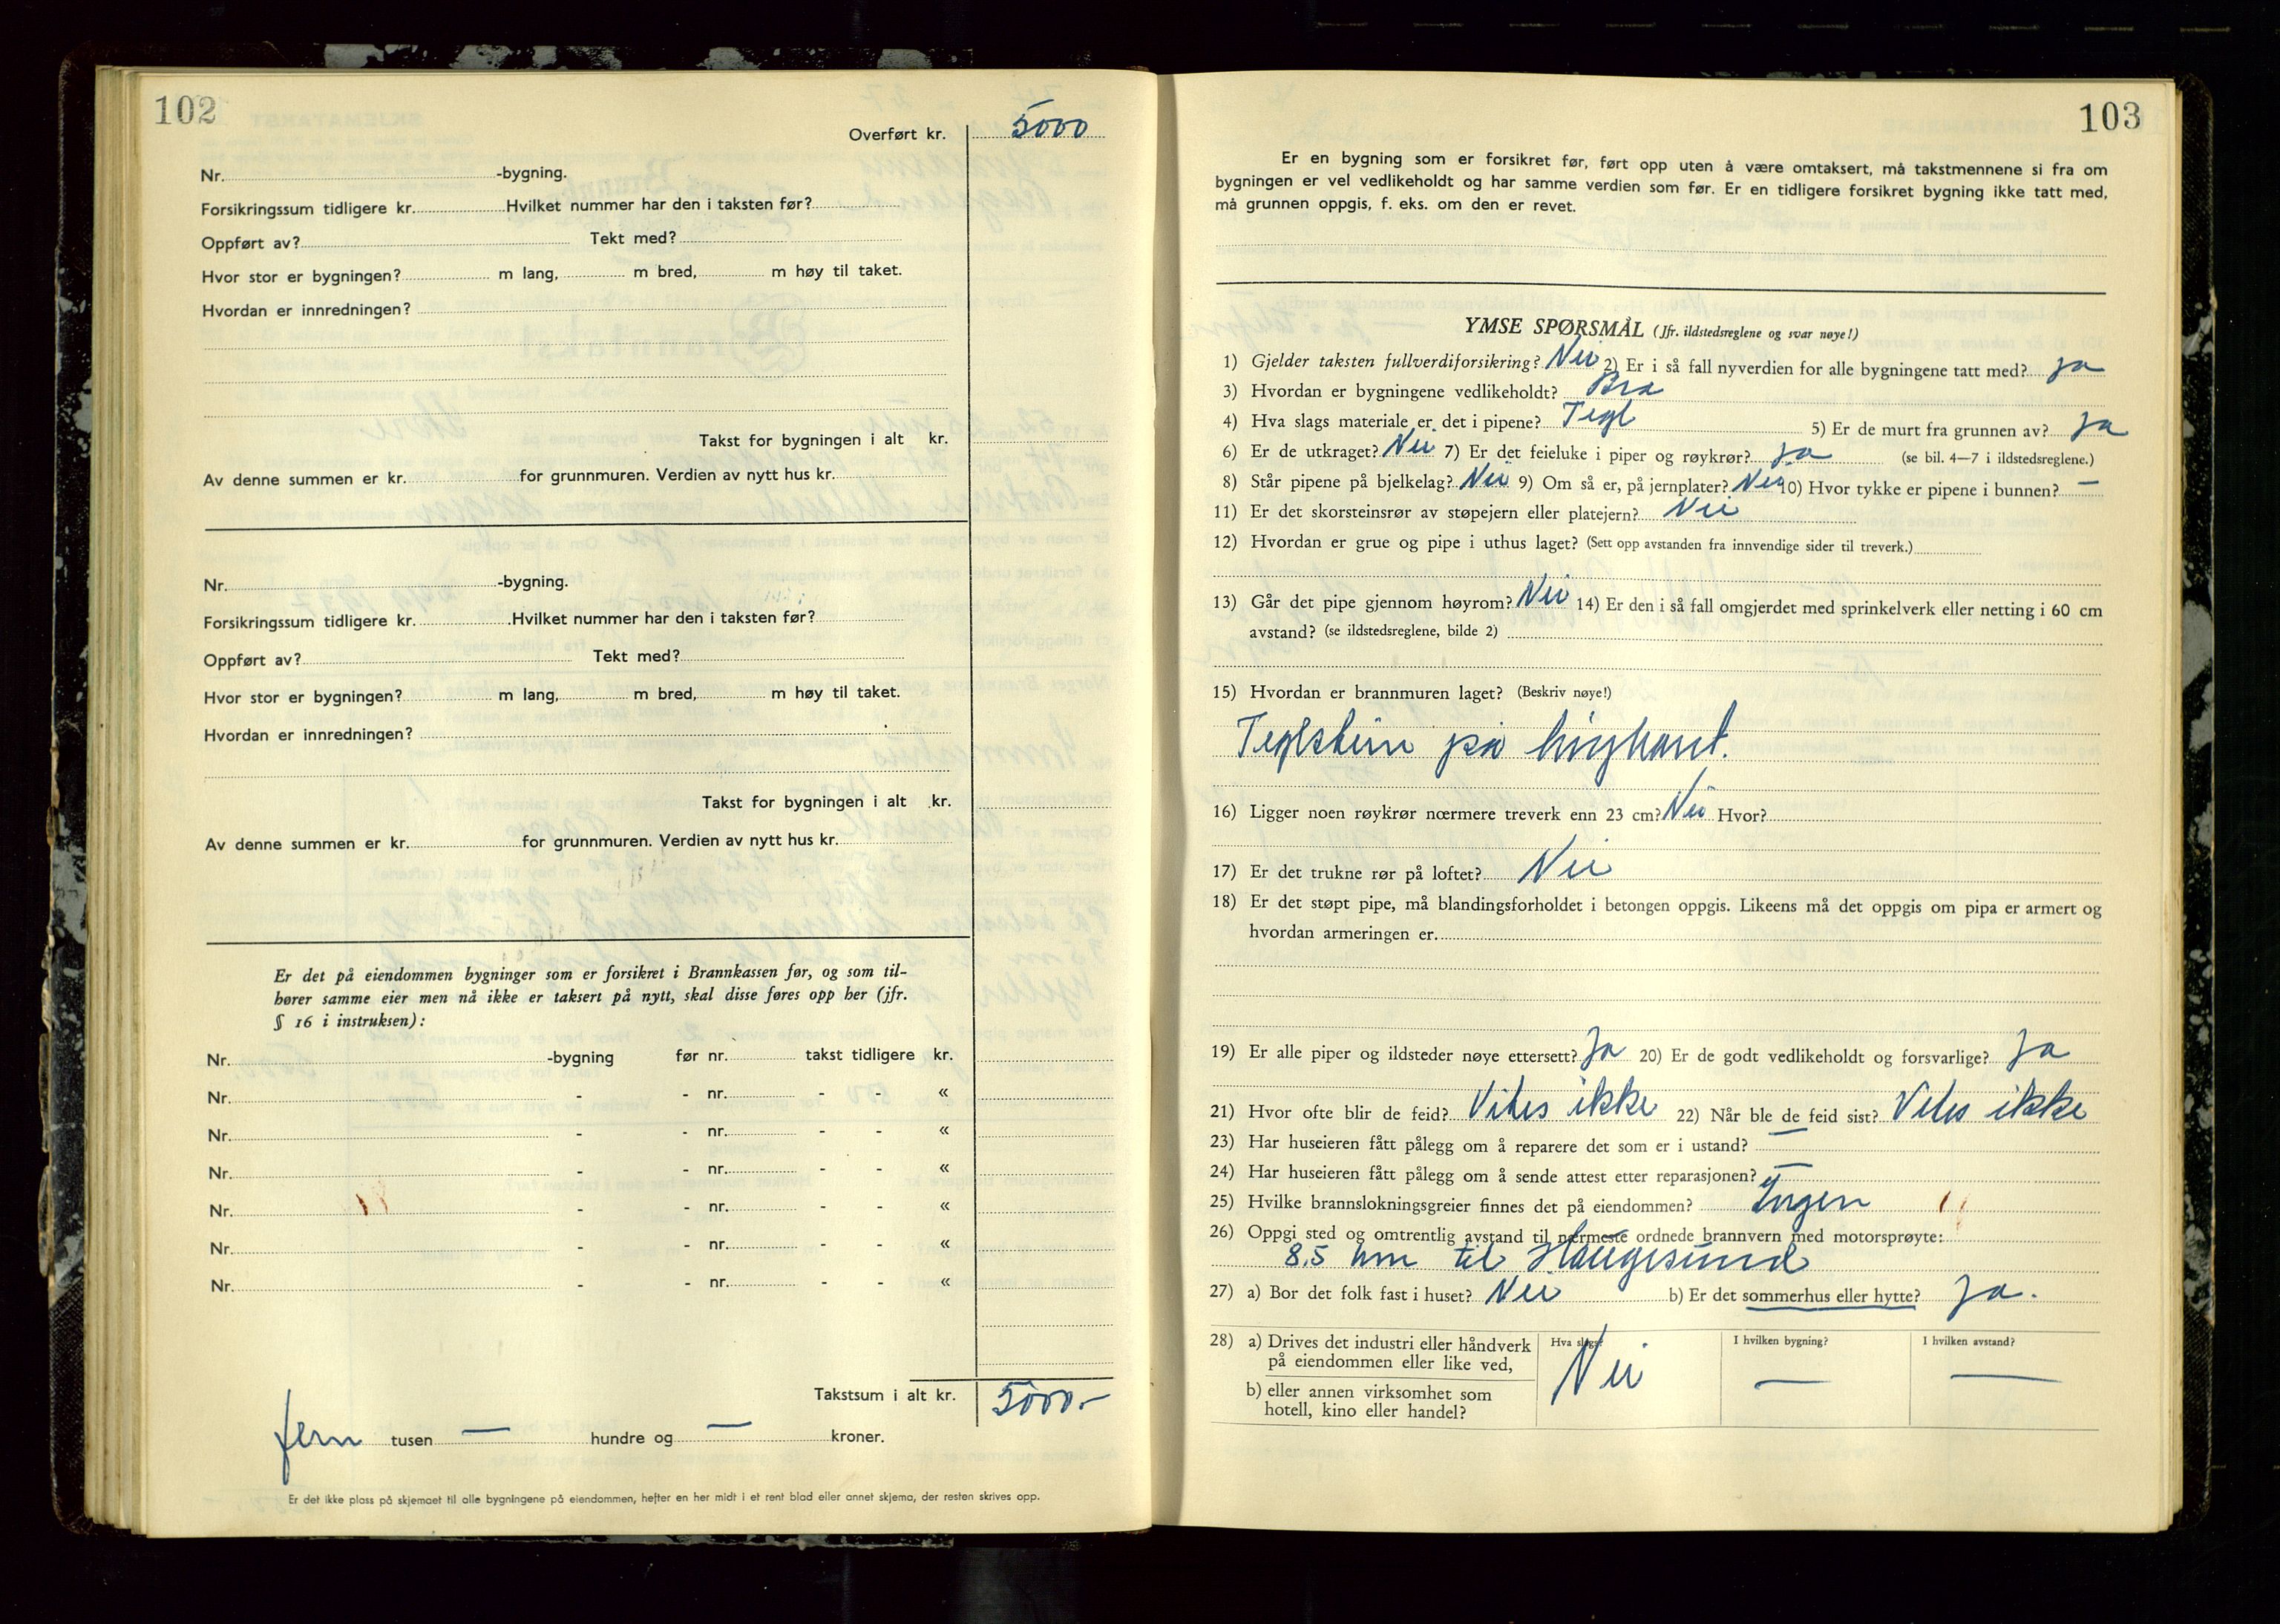 102
Overført kr. 5000
Nr. -bygning.
Forsikringssum tidligere kr. Hvilket nummer har den i taksten før?
Oppført av? Tekt med?
Hvor stor er bygningen? m lang, m bred, m høy til taket.
Hvordan er innredningen?
Takst for bygningen i alt kr.
Av denne summen er kr. for grunnmuren. Verdien av nytt hus kr.
Nr. -bygning.
Forsikringssum tidligere kr. Hvilket nummer har den i taksten før?
Oppført av? Tekt med?
Hvor stor er bygningen? m lang, m bred, m høy til taket.
Hvordan er innredningen?
Takst for bygningen i alt kr.
Av denne summen er kr. for grunnmuren. Verdien av nytt hus kr.
Er det på eiendommen bygninger som er forsikret i Brannkassen før, og som til-
hører samme eier men nå ikke er taksert på nytt, skal disse føres opp her (jfr.
§ 16 i instruksen):
Nr. -bygning før nr. takst tidligere kr.
Nr. - - nr. - - «
Nr. - - nr. - - «
Nr. - - nr. - - «
Nr. - - nr. - - «
Nr. - - nr. - - «
Nr. - - nr. - - «
Takstsum i alt kr. 5000.-
fem tusen — hundre og — kroner.
Er det ikke plass på skjemaet til alle bygningene på eiendommen, hefter en her midt i et rent blad eller annet skjema, der resten skrives opp.
103
Er en bygning som er forsikret før, ført opp uten å være omtaksert, må takstmennene si fra om
bygningen er vel vedlikeholdt og har samme verdien som før. Er en tidligere forsikret bygning ikke tatt med,
må grunnen oppgis, f. eks. om den er revet.
YMSE SPØRSMÅL (Jfr. ildstedsreglene og svar nøye!)
1) Gjelder taksten fullverdiforsikring? Nei 2) Er i så fall nyverdien for alle bygningene tatt med? Ja
3) Hvordan er bygningene vedlikeholdt? Bra
4) Hva slags materiale er det i pipene? Tegl 5) Er de murt fra grunnen av? Ja
6) Er de utkraget? Nei 7) Er det feieluke i piper og røykrør? Ja (se bil. 4—7 i ildstedsreglene.)
8) Står pipene på bjelkelag? Nei 9) Om så er, på jernplater? Nei 10) Hvor tykke er pipene i bunnen? —
11) Er det skorsteinsrør av støpejern eller platejern? Nei
12) Hvordan er grue og pipe i uthus laget? (Sett opp avstanden fra innvendige sider til treverk.)
13) Går det pipe gjennom høyrom? Nei 14) Er den i så fall omgjerdet med sprinkelverk eller netting i 60 cm
avstand? (se ildstedsreglene, bilde 2)
15) Hvordan er brannmuren laget? (Beskriv nøye!)
Teglstein på høykant.
16) Ligger noen røykrør nærmere treverk enn 23 cm? Nei Hvor?
17) Er det trukne rør på loftet? Nei
18) Er det støpt pipe, må blandingsforholdet i betongen oppgis. Likeens må det oppgis om pipa er armert og
hvordan armeringen er.
19) Er alle piper og ildsteder nøye ettersett? Ja 20) Er de godt vedlikeholdt og forsvarlige? Ja
21) Hvor ofte blir de feid? Vites ikke 22) Når ble de feid sist? Vites ikke
23) Har huseieren fått pålegg om å reparere det som er i ustand? —
24) Har huseieren fått pålegg om å sende attest etter reparasjonen? —
25) Hvilke brannslokningsgreier finnes det på eiendommen? Ingen
26) Oppgi sted og omtrentlig avstand til nærmeste ordnede brannvern med motorsprøyte:
8,5 km til Haugesund
27) a) Bor det folk fast i huset? Nei b) Er det sommerhus eller hytte? Ja.
28) a) Drives det industri eller håndverk Hva slags? I hvilken bygning? I hvilken avstand?
på eiendommen eller like ved, Nei — —
b) eller annen virksomhet som
hotell, kino eller handel?